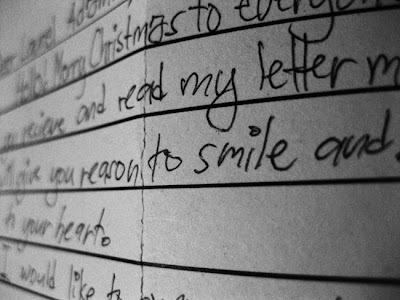 Hello! Merry Christmas to everyon
you recieve and read my letter m
will give you reason to smile and
in your heart.
I would like to